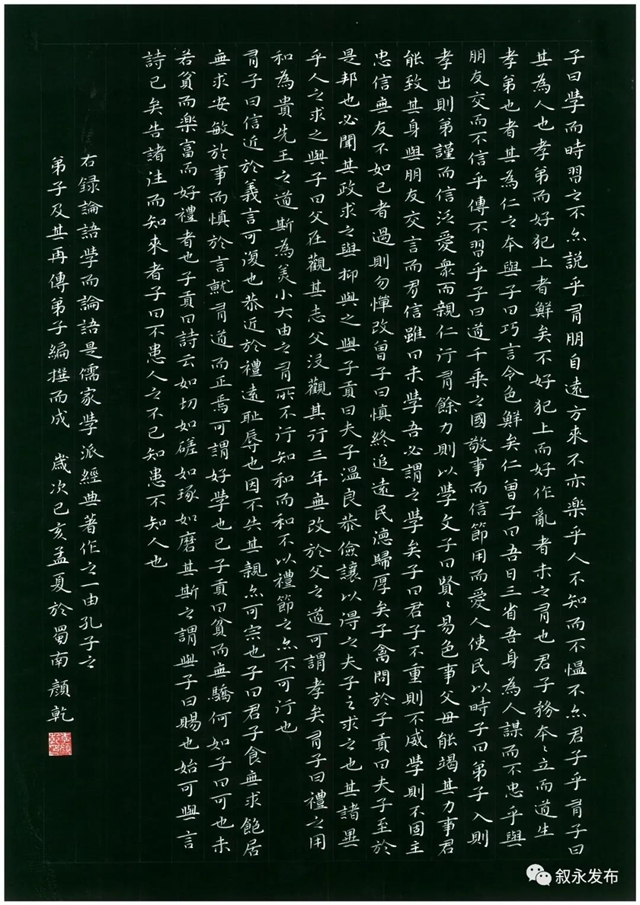 子曰學而時習之不亦説乎有朋自遠方來不亦樂乎人不知而不愠不亦君子乎有子曰
其為人也孝弟而好犯上者鮮矣不好犯上而好作亂者未之有也君子務本〻立而道生
孝弟也者其為仁之本與子曰巧言令色鮮矣仁曾子曰吾日三省吾身為人謀而不忠乎與
朋友交而不信乎傳不習乎子曰道千乘之國敬事而信節用而愛人使民以時子曰弟子入則
孝出則弟謹而信泛愛衆而親仁行有餘力則以學文子曰賢〻易色事父母能竭其力事君
能致其身與朋友交言而有信雖曰未學吾必謂之學矣子曰君子不重則不威學則不固主
忠信無友不如己者過則勿憚改曾子曰慎終追遠民德歸厚矣子禽問於子貢曰夫子至於
是邦也必聞其政求之與抑與之與子貢曰夫子温良恭儉讓以得之夫子之求之也其諸異
乎人之求之與子曰父在觀其志父沒觀其行三年無改於父之道可謂孝矣有子曰禮之用
和為貴先王之道斯為美小大由之有所不行知和而和不以禮節之亦不可行也
有子曰信近於義言可復也恭近於禮遠恥辱也因不失其親亦可宗也子曰君子食無求飽居
無求安敏於事而慎於言就有道而正焉可謂好學也已子貢曰貧而無驕何如子曰可也未
若貧而樂富而好禮者也子貢曰詩云如切如磋如琢如磨其斯之謂與子曰賜也始可與言
詩已矣告諸往而知來者子曰不患人之不己知患不知人也
右録論語學而論語是儒家學派經典著作之一由孔子之
弟子及其再傳弟子編撰而成 歲次己亥孟夏於蜀南顏乾
叙永发布